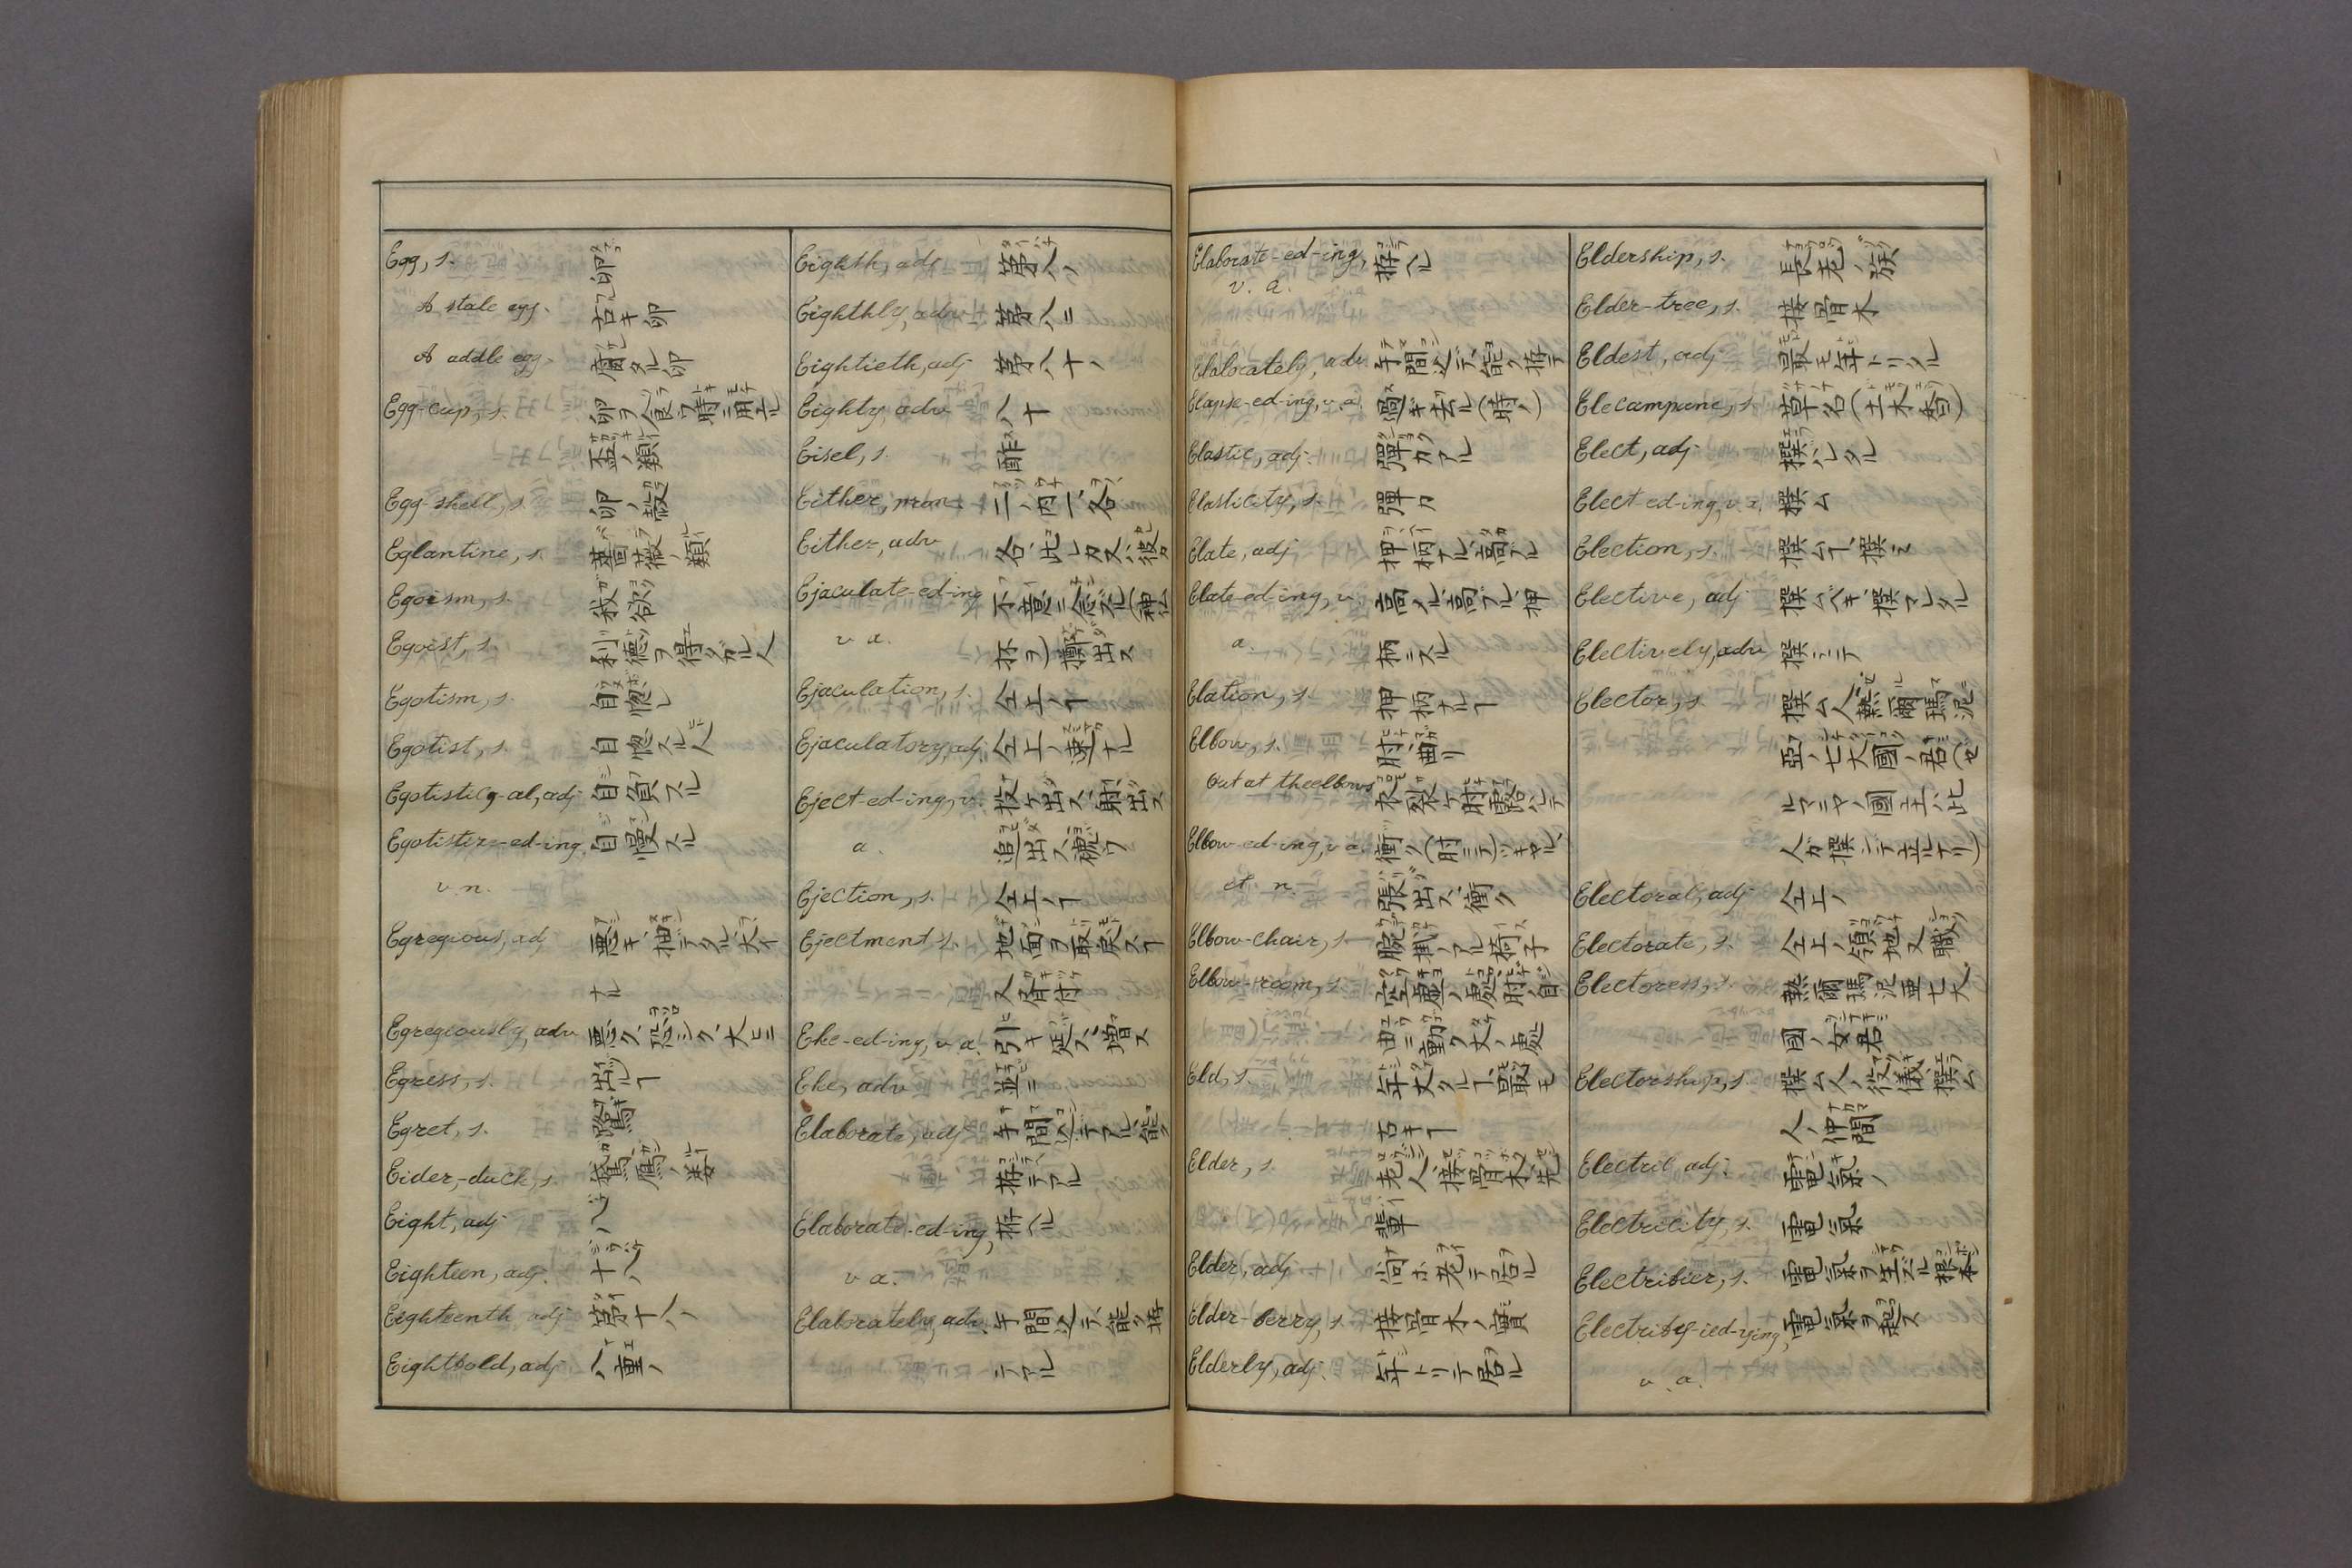 Egg, s. 卵
A stale egg. 古キ卵
A addle egg. 腐タル卵
Egg-cup, s. 卵ヲ食フ時ニ用ユル
盃ノ類
Egg-shell, s. 卵ノ殻
Eglantine, s. 薔薇ノ類
Egoism, s. 我欲
Egoist, s. 利徳ヲ得タガル人
Egotism, s. 自惚レ
Egotist, s. 自惚スル人
Egotistic-al, adj 自負スル
自慢スル
v. n.
Egregious, adj 悪キ、抽デタル、大イ
ナル
Egregiously, adv 悪ク、恐シク、大ヒニ
Egress, s. 出ルヿ
Egret, s. 鷺
Eider-duck, s. ノ類
Eight, adj 八ツ
Eighteen, adj. 十八
Eighteenth adj 第十八ノ
Eightfold, adj 八重ノ
Eighth, adj 第八ノ
Eighthly, adv 第八ニ
Eightieth, adj 第八十ノ
Eighty, adv 八十
Eisel, s. 酢
Either, pron. 二ノ内一、各
Either, adv 各、此レカ又ハ彼カ
Ejaculate-ed-ing 不意ニ念ズル(神仏
v a. 抔ヲ)擲出ス
Ejaculation, s. 仝上ノヿ
Ejaculatory, adj. 仝上ノ、速ナル
Eject-ed-ing, v. 投ケ出ス、射出ス
a. 追出ス、
Ejection, s. 仝上ノヿ
Ejectment s. 地面ヲ取戻スヿ
又
Eke-ed-ing, v a. 引キ延ス、増ス
Eke, adv 並ニ
Elaborate, adj 手間込テアル、能ク
拵テアル
Elaborate-ed-ing, 拵ヘル
v a.
Elaborately, adv. 手間込テ、能ク拵
テアル
Elaborate-ed-ing, 拵ヘル
v. a.
Elaborately, adv. 手間込テ、能ク拵テ
Elapse-ed-ing, v. a. 過ギ去ル(時ノ)
Elastic, adj. 彈力アル
Elasticity, s. 彈力
Elate, adj 押柄ナル、高ブル
Elate-ed-ing, v. 高メル、高ブル、押
a. 柄ニスル
Elation, s. 押柄ナルヿ
Elbow, s. 肘、曲リ
Out at the elbows 衣裂ケ肘露レテ
Elbow-ed-ing, v a. 衝ク(肘ニテ)ツキヤル、
et. n. 張出ス、衝ク
Elbow-chair, s. 腕掛ノアル椅子
Elbow-room, s. 空虚ノ處、肘ノ自
由ニ動ク丈ノ處
Eld, s. 年丈タルヿ、最モ
古キヿ
Elder, s. 老人、接骨木、先
輩
Elder, adj 尚ホ老テ居ル
Elder-berry, s. 接骨木ノ實
Elderly, adj. 年トリテ居ル
Eldership, s. 長老ノ族
Elder-tree, s. 接骨木
Eldest, adj 最モ年トリタル
Elecampane, s. 草ノ名(土木香)
Elect, adj 撰バレタル
Elect-ed-ing, v. a. 撰ム
Election, s. 撰ムヿ、撰ミ
Elective, adj 撰ムベキ、撰マレタル
Electively, adv 撰ミテ
Elector, s. 撰ム人、熱爾瑪泥
亞ノ七大國ノ君(ゼ
ルマニヤノ國王ハ此
人ガ撰ンデ立ルナリ)
Electoral, adj 仝上ノ
Electorate, s. 仝上ノ領地又職
Electoress, s. 熱爾瑪泥亜七大
國ノ女君
Electorship, s. 撰ム人ノ役儀、撰ム
人ノ仲間
Electric adj. 電氣ノ
Electricity, s. 電氣
Electrifier, s. 電氣ヲ生ズル根本
Electrify-ied-ying, 電氣ヲ起ス
v. a.